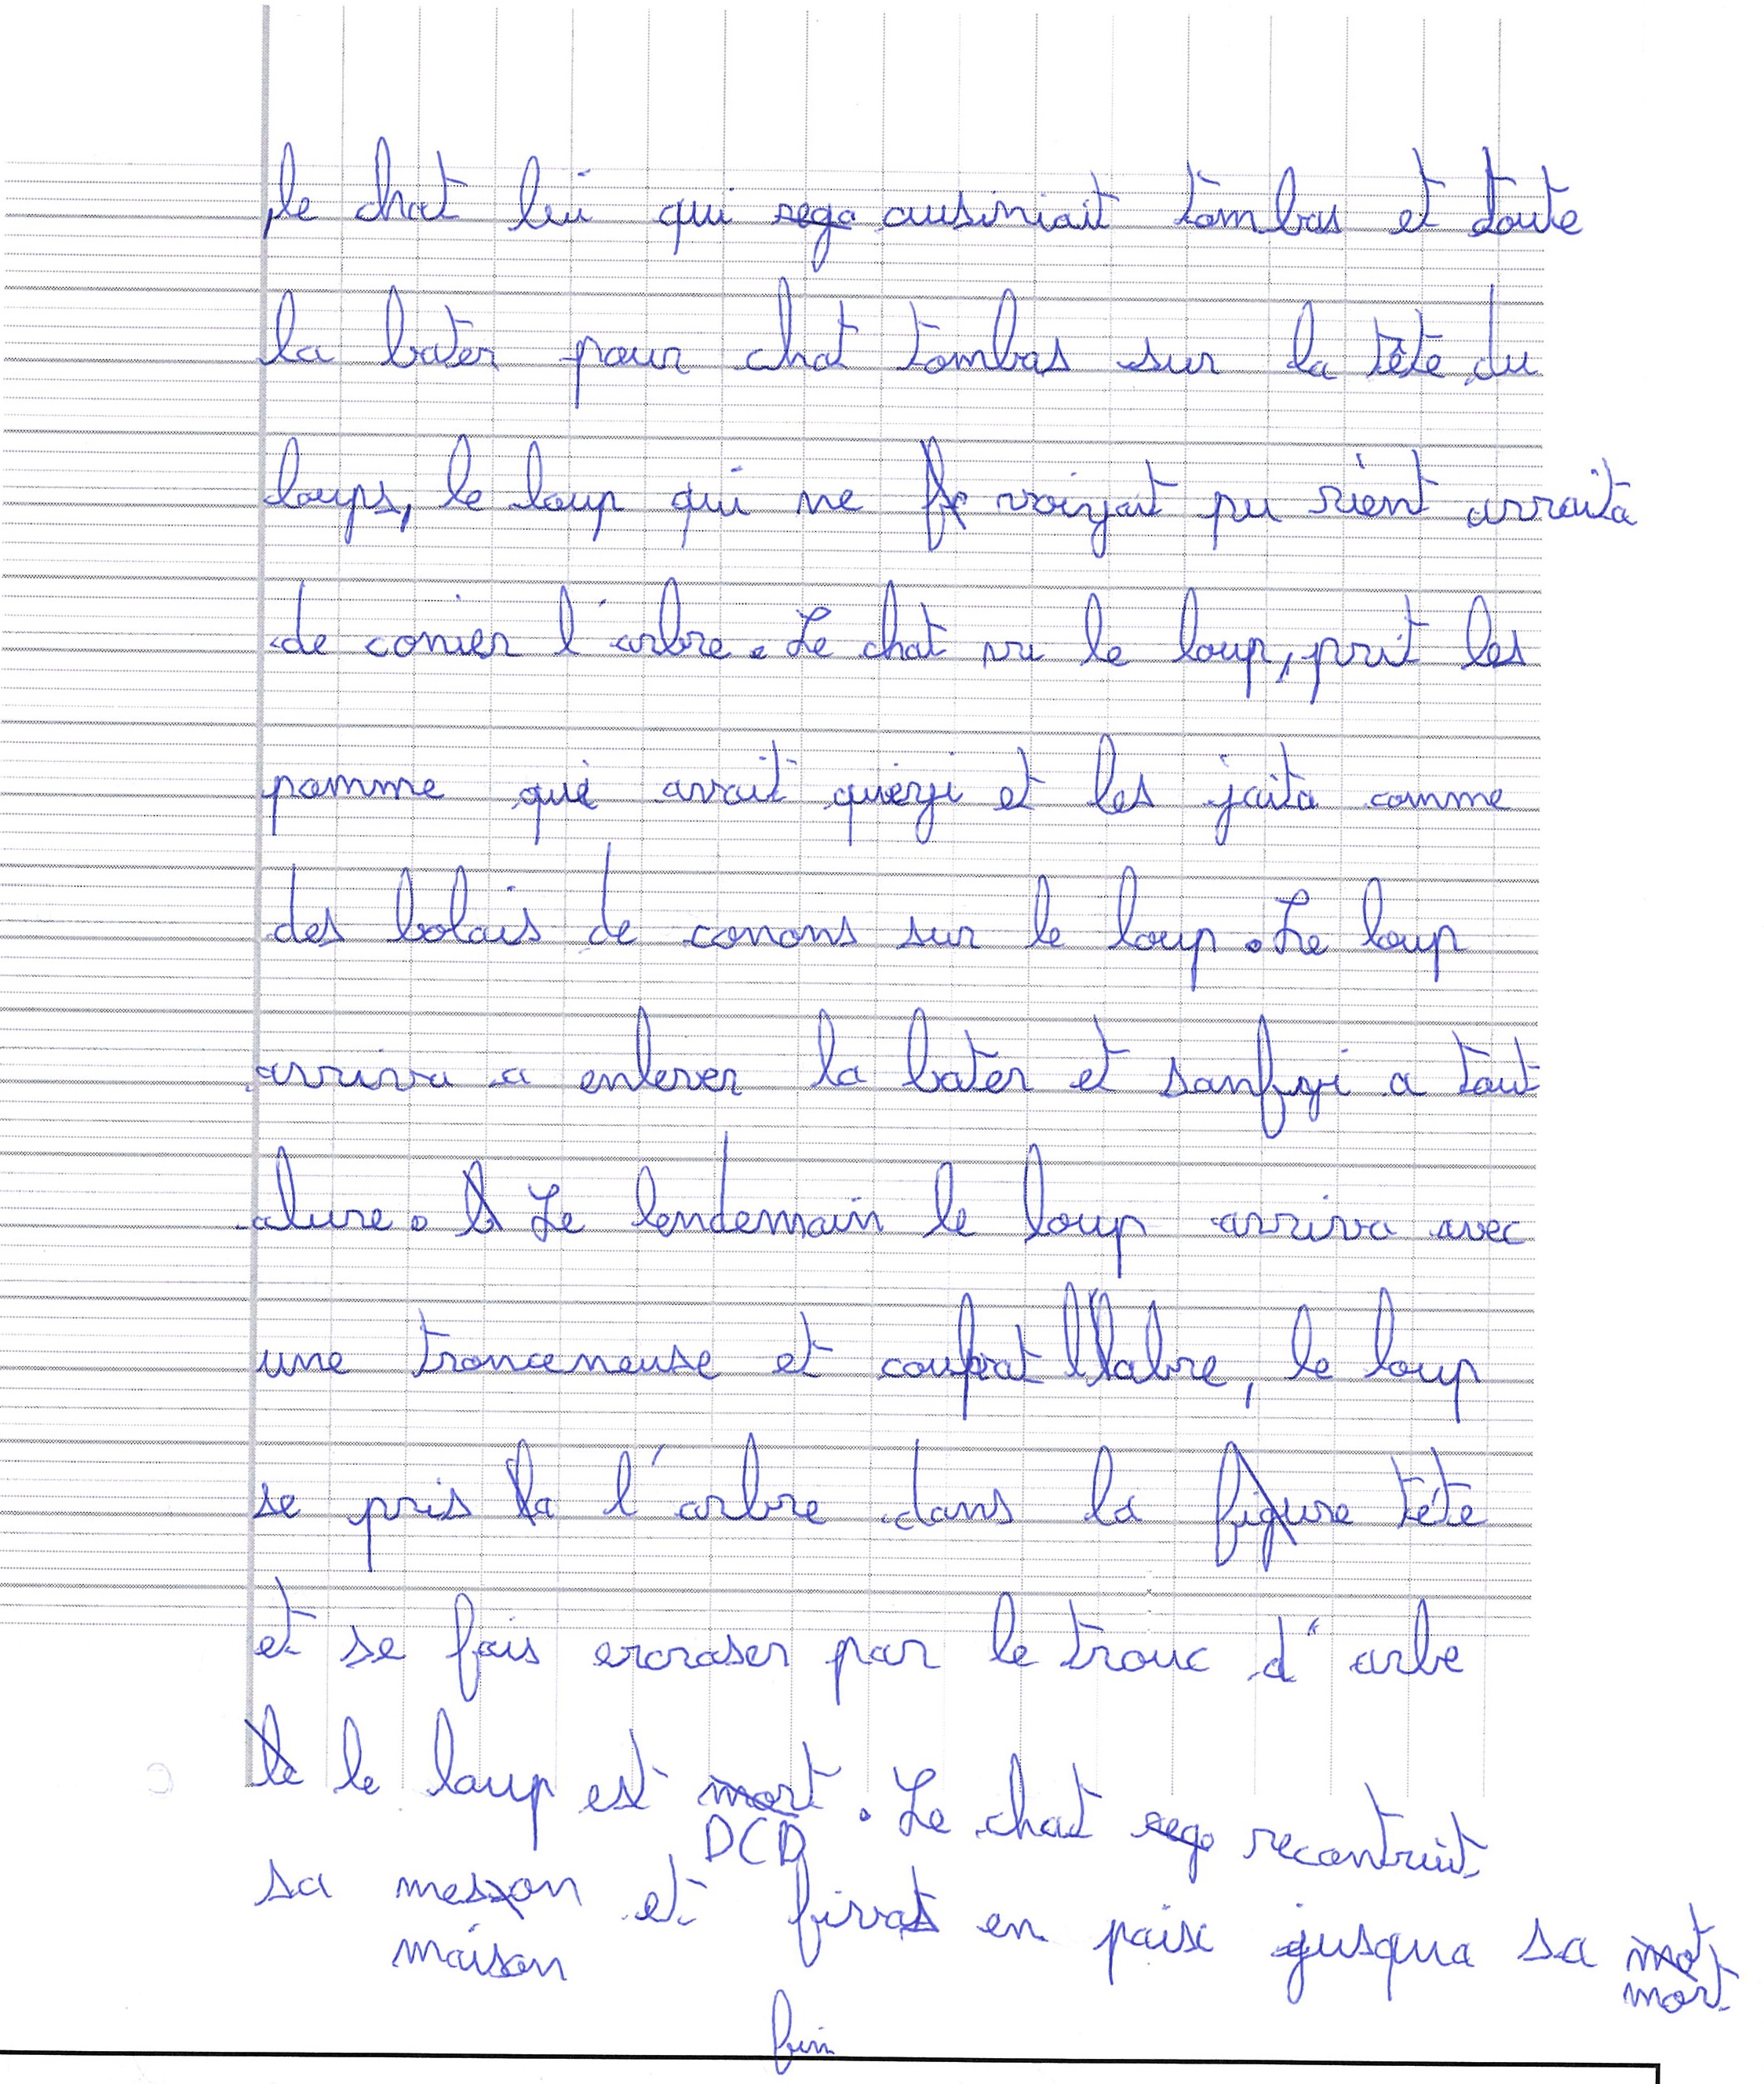 ,le chat lui qui rega cuisiniait tombas et toute
la bater pour chat tombas sur la tête du
loups, le loup qui ne voiyait pu rient arraita
de conier l'arbre. Le chat vu le loup, prit les
pomme qui avait quieyi et les jaita comme
des bolais de conons sur le loup. Le loup
arriva a enlever la bater et sanfuyi a tout
alure. Le lendemain le loup arriva avec
une tronceneuse et coupat l'labre, le loup
se pris la l'arbre dans la figure tête
et se fais ecraser par le trouc d'arbe
le le loup est mort. Le chat rega recontruit
DCD
sa meson et fivat en paix jusqua sa mot
maison
mort
fin